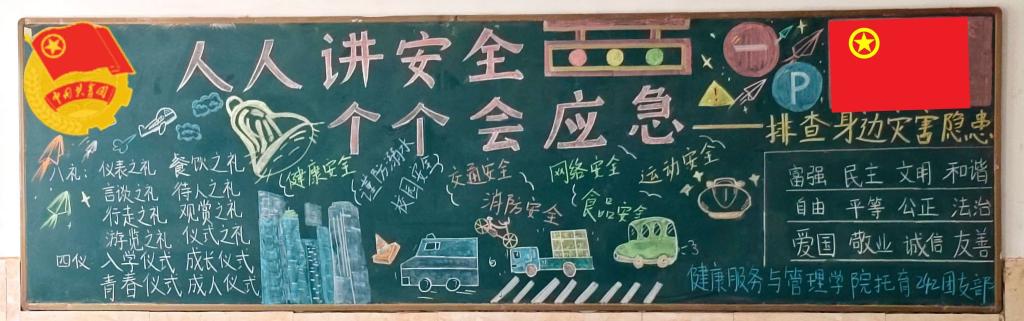 中国共青团
人人讲安全
个个会应急
P
——排查身边灾害隐患
八礼：仪表之礼 餐饮之礼
言谈之礼 待人之礼
行走之礼 观赏之礼
游览之礼 仪式之礼
四仪 入学仪式 成长仪式
青春仪式 成人仪式
健康安全
谨防溺水
校园安全
交通安全
消防安全
网络安全
食品安全
运动安全
富强 民主 文明 和谐
自由 平等 公正 法治
爱国 敬业 诚信 友善
健康服务与管理学院托育242团支部